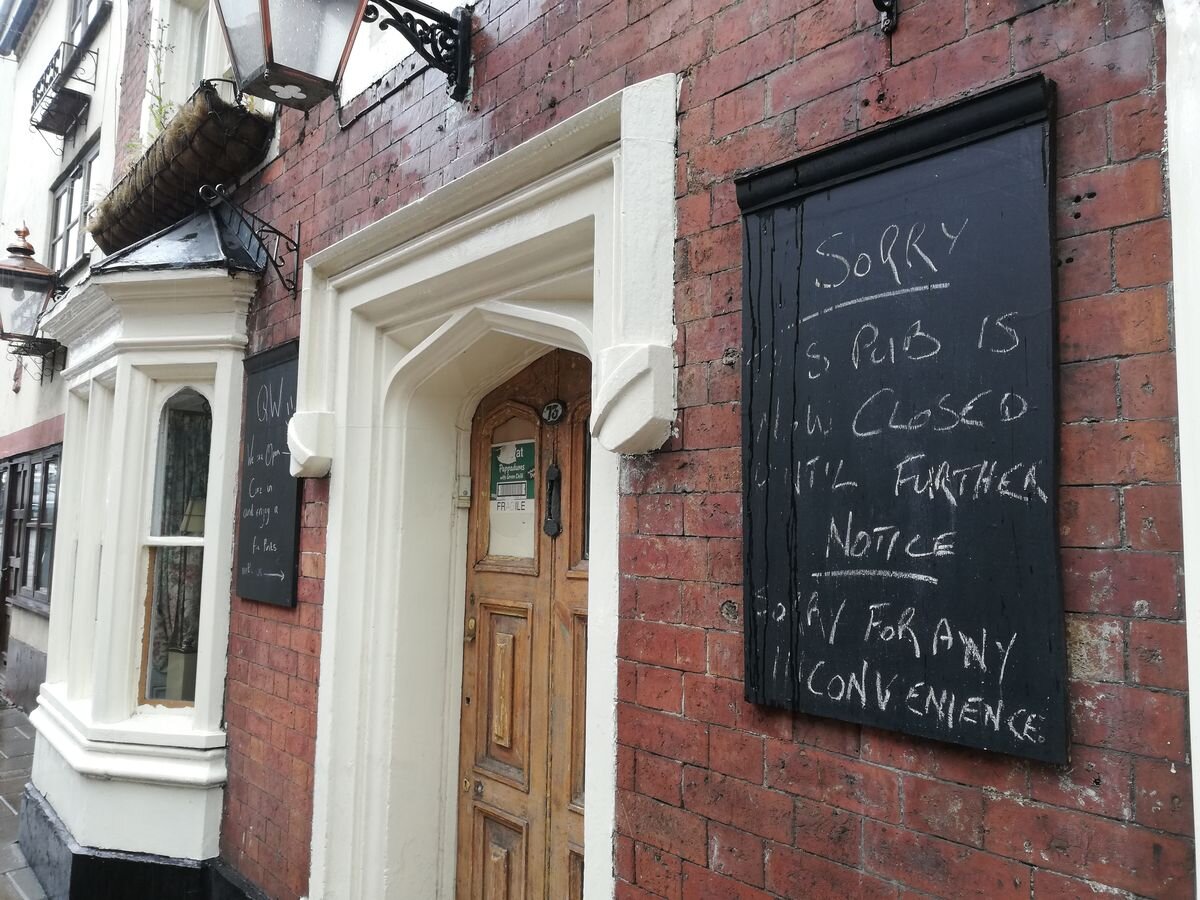 SORRY
PUB IS
CLOSED
UNTIL FURTHER
NOTICE
SORRY FOR ANY
INCONVENIENCE.
We are Open
in
and enjoy a
73
Pappadums
FRAGILE